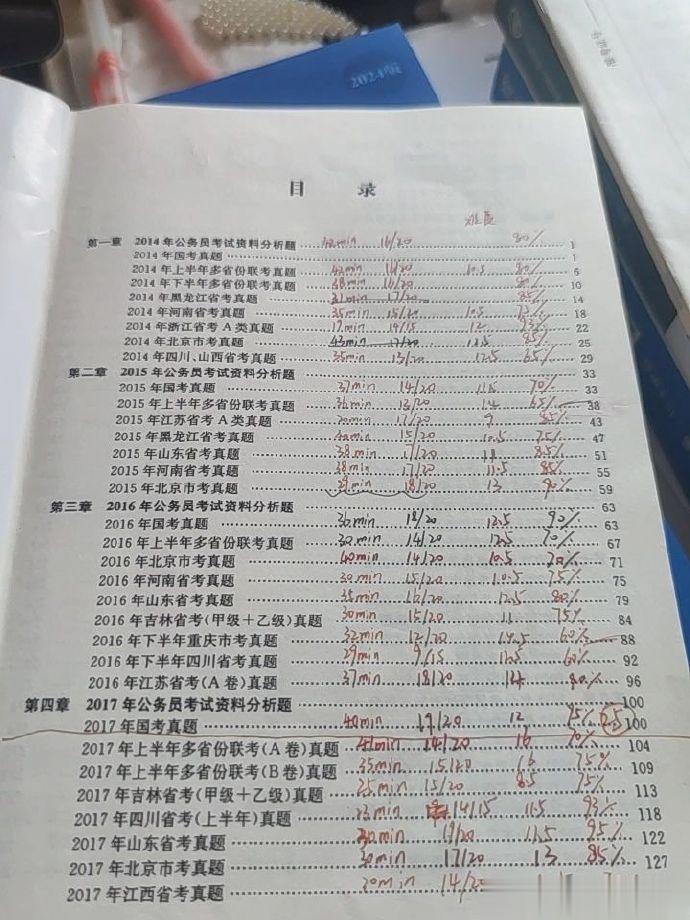 2024版
目 录
难度
第一章 2014年公务员考试资料分析题 42min 16/20 80% 1
2014年国考真题 1
2014年上半年多省份联考真题 42min 16/20 10.5 80% 6
2014年下半年多省份联考真题 38min 16/20 80% 10
2014年黑龙江省考真题 17/20 85% 14
2014年河南省考真题 35min 15/20 10.5 75% 18
2014年浙江省考A类真题 19min 14/15 12 93% 22
2014年北京市考真题 43min 17/20 85% 25
2014年四川、山西省考真题 35min 13/20 12.5 65% 29
第二章 2015年公务员考试资料分析题 33
2015年国考真题 37min 14/20 11.5 70% 33
2015年上半年多省份联考真题 36min 13/20 14 65% 38
2015年江苏省考A类真题 17/20 9 85% 43
2015年黑龙江省考真题 40min 15/20 10.5 75% 47
2015年山东省考真题 38min 17/20 11 85% 51
2015年河南省考真题 38min 17/20 11.5 85% 55
2015年北京市考真题 29min 18/20 13 90% 59
第三章 2016年公务员考试资料分析题 63
2016年国考真题 36min 18/20 12.5 90% 63
2016年上半年多省份联考真题 30min 14/20 12.5 70% 67
2016年北京市考真题 40min 14/20 10.5 70% 71
2016年河南省考真题 30min 15/20 10.5 75% 75
2016年山东省考真题 38min 16/20 12.5 80% 79
2016年吉林省考(甲级+乙级)真题 30min 15/20 11 75% 84
2016年下半年重庆市考真题 32min 12/20 14.5 60% 88
2016年下半年四川省考真题 29min 9/15 12.5 60% 92
2016年江苏省考(A卷)真题 37min 18/20 14 96
第四章 2017年公务员考试资料分析题 100
2017年国考真题 40min 12 100
2017年上半年多省份联考(A卷)真题 41min 14/20 16 70% 104
2017年上半年多省份联考(B卷)真题 35min 15/20 16 75% 109
2017年吉林省考(甲级+乙级)真题 15/20 8.5 75% 113
2017年四川省考(上半年)真题 23min 14/15 11.5 93% 118
2017年山东省考真题 30min 19/20 11.5 95% 122
2017年北京市考真题 30min 17/20 13 85% 127
2017年江西省考真题 30min 14/20